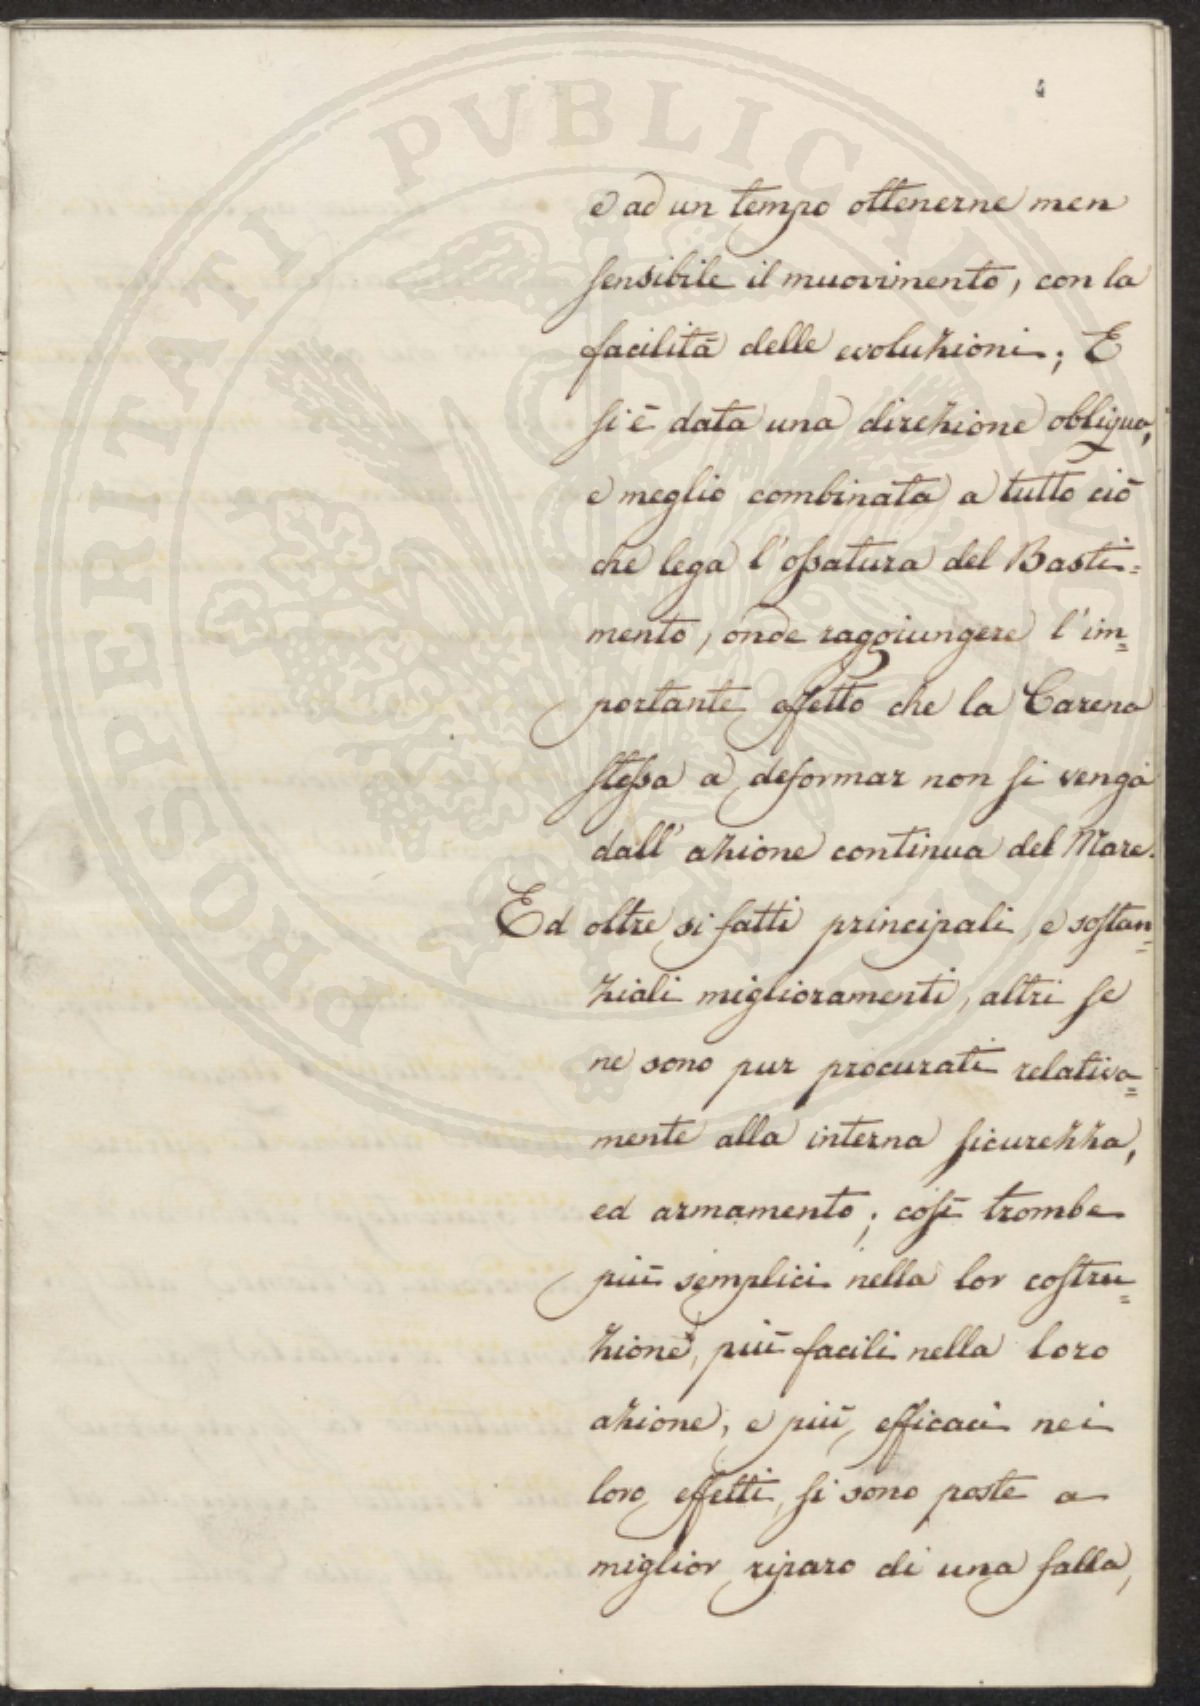 4
e ad un tempo ottenerne men
sensibile il muovimento, con la
facilità delle evoluzioni; E
si è data una direzione obliqua,
e meglio combinata a tutto ciò
che lega l'ossatura del Basti=
mento, onde raggiungere l'im=
portante effetto che la Carena
stessa a deformar non si venga
dall'azione continua del Mare.
Ed oltre si fatti principali, e sostan=
ziali miglioramenti, altri se
ne sono pur procurati relativa=
mente alla interna sicurezza,
ed armamento; così trombe
più semplici nella lor costru=
zione, più facili nella loro
azione, e più efficaci nei
loro effetti, si sono poste a
miglior riparo di una falla,
PROSPERITATI PVBLICAE